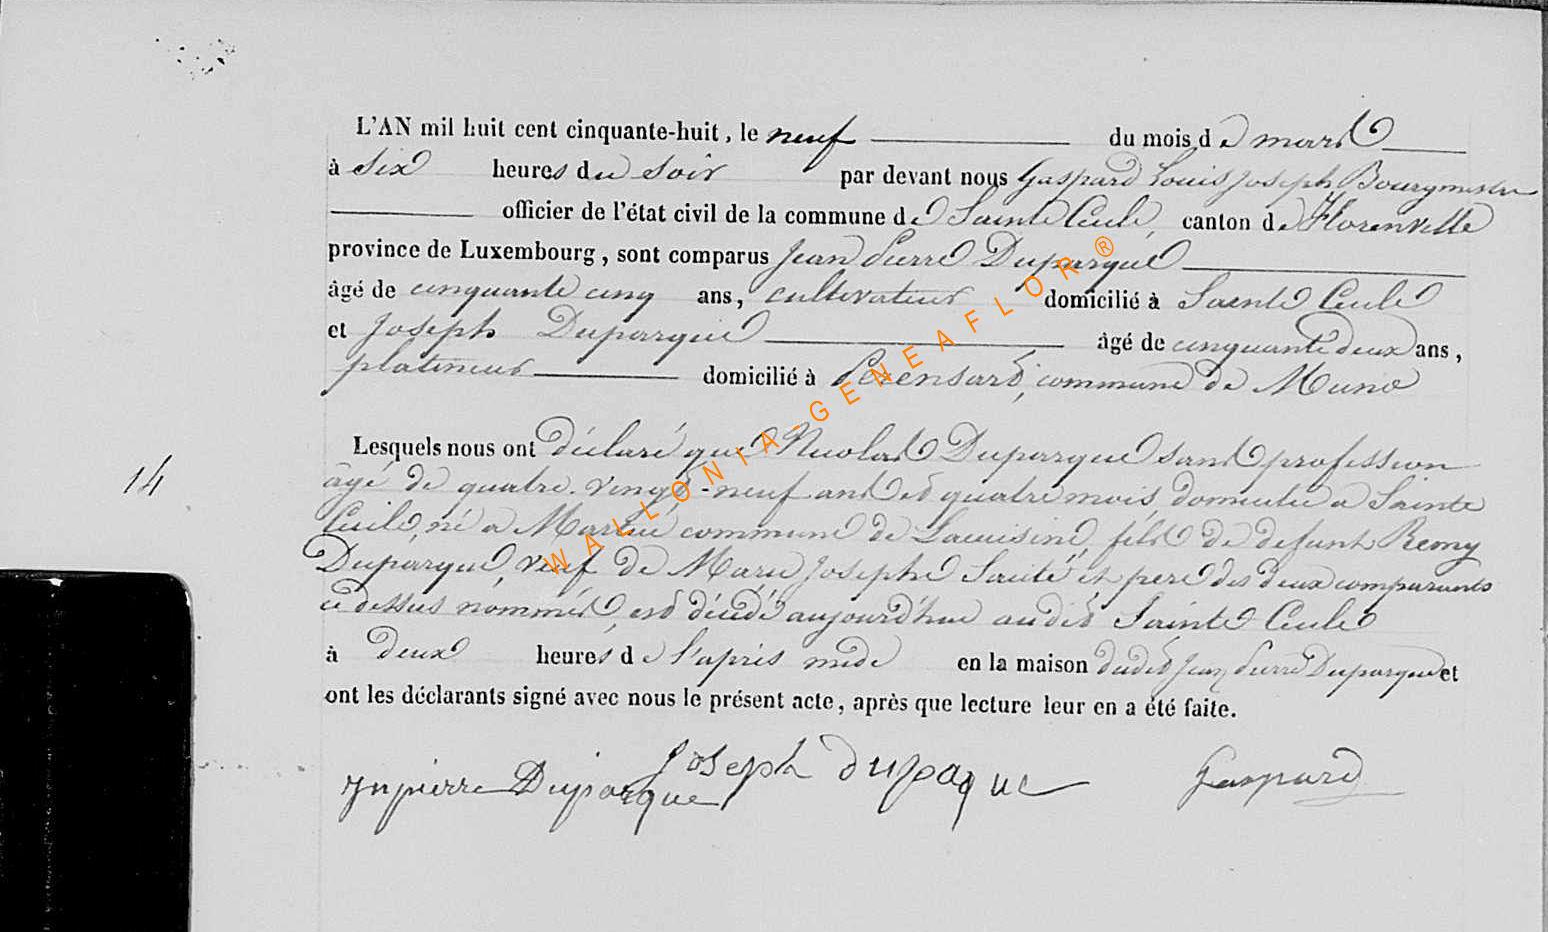 L'AN mil huit cent cinquante-huit, le neuf du mois de mars
à six heures du soir par devant nous Gaspard Louis Joseph Bourgmestre
officier de l'état civil de la commune de Sainte Cecile, canton de Florenville
province de Luxembourg, sont comparus Jean Pierre Duparque
âgé de cinquante cinq ans, cultivateur domicilié à Sainte Cecile
et Joseph Duparque âgé de cinquante deux ans,
platineur domicilié à commune de Muno
Lesquels nous ont déclaré que Nicolas Duparque sans profession
14
âgé de quatre-vingt-neuf ans et quatre mois, domicilié a Sainte
Cecile, né a commune de Lacuisine, fils de defunt Remy
Duparque, veuf de Marie Josephe et pere des deux comparants
ci dessus nommés, est décédé aujourd'hui audit Sainte Cecile
à deux heures de l'après midi en la maison dudit Jean Pierre Duparque et
ont les déclarants signé avec nous le présent acte, après que lecture leur en a été faite.
Joseph dupaque
Jnpierre Duparque
Gaspard
WALLONIA-GENEAFLOR®